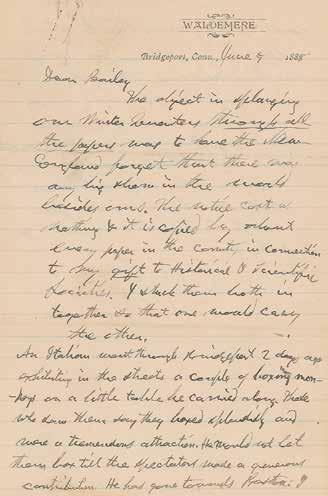 WALDEMERE
Bridgeport, Conn., June 9 1885
Dear Bailey
The object in splurging
our Winter Quarters through all
the papers was to have the New
England forget that there was
any big show in the world
besides ours. The notice cost us
nothing & it is copied by about
every paper in the County in connection
to my gift to Historical & Scientific
Societies. I stuck them both in
together so that one would carry
the other.
An Italian went through Bridgeport 2 days ago
exhibiting in the streets a couple of boxing mon-
keys on a little table he carried along. Those
who saw them say they boxed splendidly and
were a tremendous attraction. He would not let
them box till the spectators made a generous
contribution. He has gone towards Boston. I